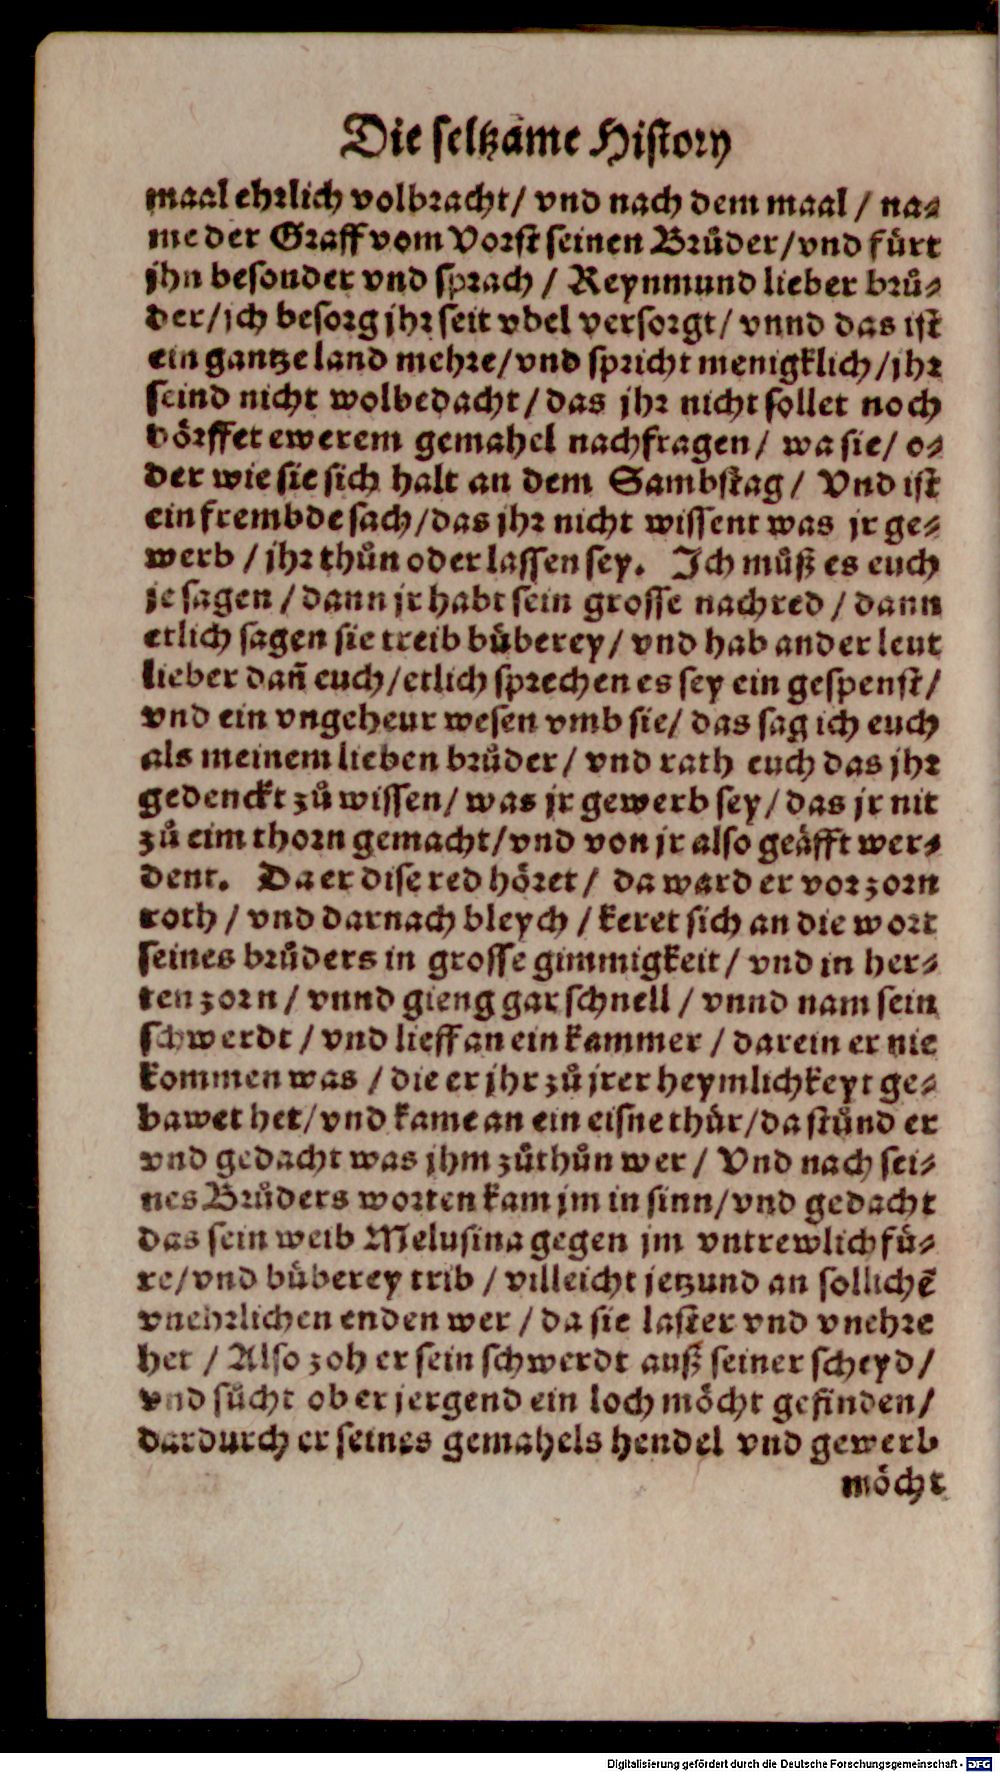 Die seltzame History
maal ehrlich volbracht/ vnd nach dem maal / na⸗
me der Graff vom Vorst seinen Brůder/vnd fůrt
jhn besonder vnd sprach / Reynmund lieber brů⸗
der/jch besorg jhr seit vbel versorgt/ vnnd das ist
ein gantze land mehre/vnd spricht menigklich/jhr
seind nicht wolbedacht/das jhr nicht sollet noch
dörffet ewerem gemahel nachfragen/ wa sie/ o⸗
der wie sie sich halt an dem Sambstag/ Vnd ist
ein frembde sach/das jhr nicht wissent was jr ge⸗
werb / jhr thůn oder lassen sey. Ich můß es euch
je sagen / dann jr habt sein grosse nachred / dann
etlich sagen sie treib bůberey/ vnd hab ander leut
lieber dañ euch/etlich sprechen es sey ein gespenst/
vnd ein vngeheur wesen vmb sie/ das sag ich euch
als meinem lieben brůder/ vnd rath euch das jhr
gedenckt zů wissen/ was jr gewerb sey/das jr nit
zů eim thorn gemacht/vnd von jr also geäfft wer⸗
dent. Da er dise red höret/ da ward er vor zorn
roth / vnd darnach bleych / keret sich an die wort
seines brůders in grosse gimmigkeit/ vnd in her⸗
ten zorn / vnnd gieng gar schnell / vnnd nam sein
schwerdt / vnd lieff an ein kammer / darein er nie
kommen was / die er jhr zů jrer heymlichkeyt ge⸗
bawet het/vnd kame an ein eisne thür/da stůnd er
vnd gedacht was jhm zůthůn wer / Vnd nach sei⸗
nes Brůders worten kam jm in sinn/vnd gedacht
das sein weib Melusina gegen jm vntrewlich fů⸗
re/vnd bůberey trib / villeicht jetzund an sollichē
vnehrlichen enden wer / da sie laster vnd vnehre
het / Also zoh er sein schwerdt auß seiner scheyd/
vnd sůcht ob er jergend ein loch möcht gefinden/
dardurch er seines gemahels hendel vnd gewerb
möcht
Digitalisierung gefördert durch die Deutsche Forschungsgemeinschaft - DFG